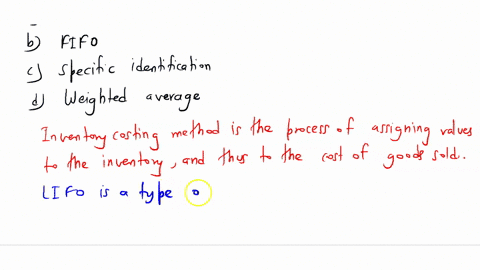 b) FIFO
c) Specific identification
d) Weighted average
Inventory costing method is the process of assigning values
to the inventory, and thus to the cost of goods sold.
LIFO is a type o